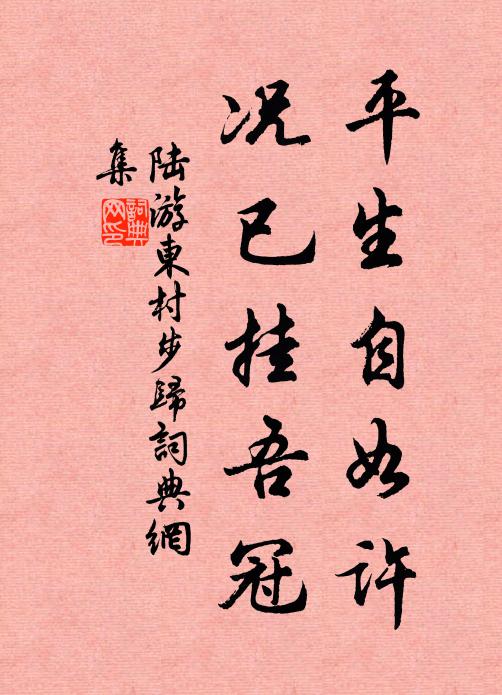 平生自如许
况已挂吾冠
陆游東村步歸詞典網
集
詞典
网印